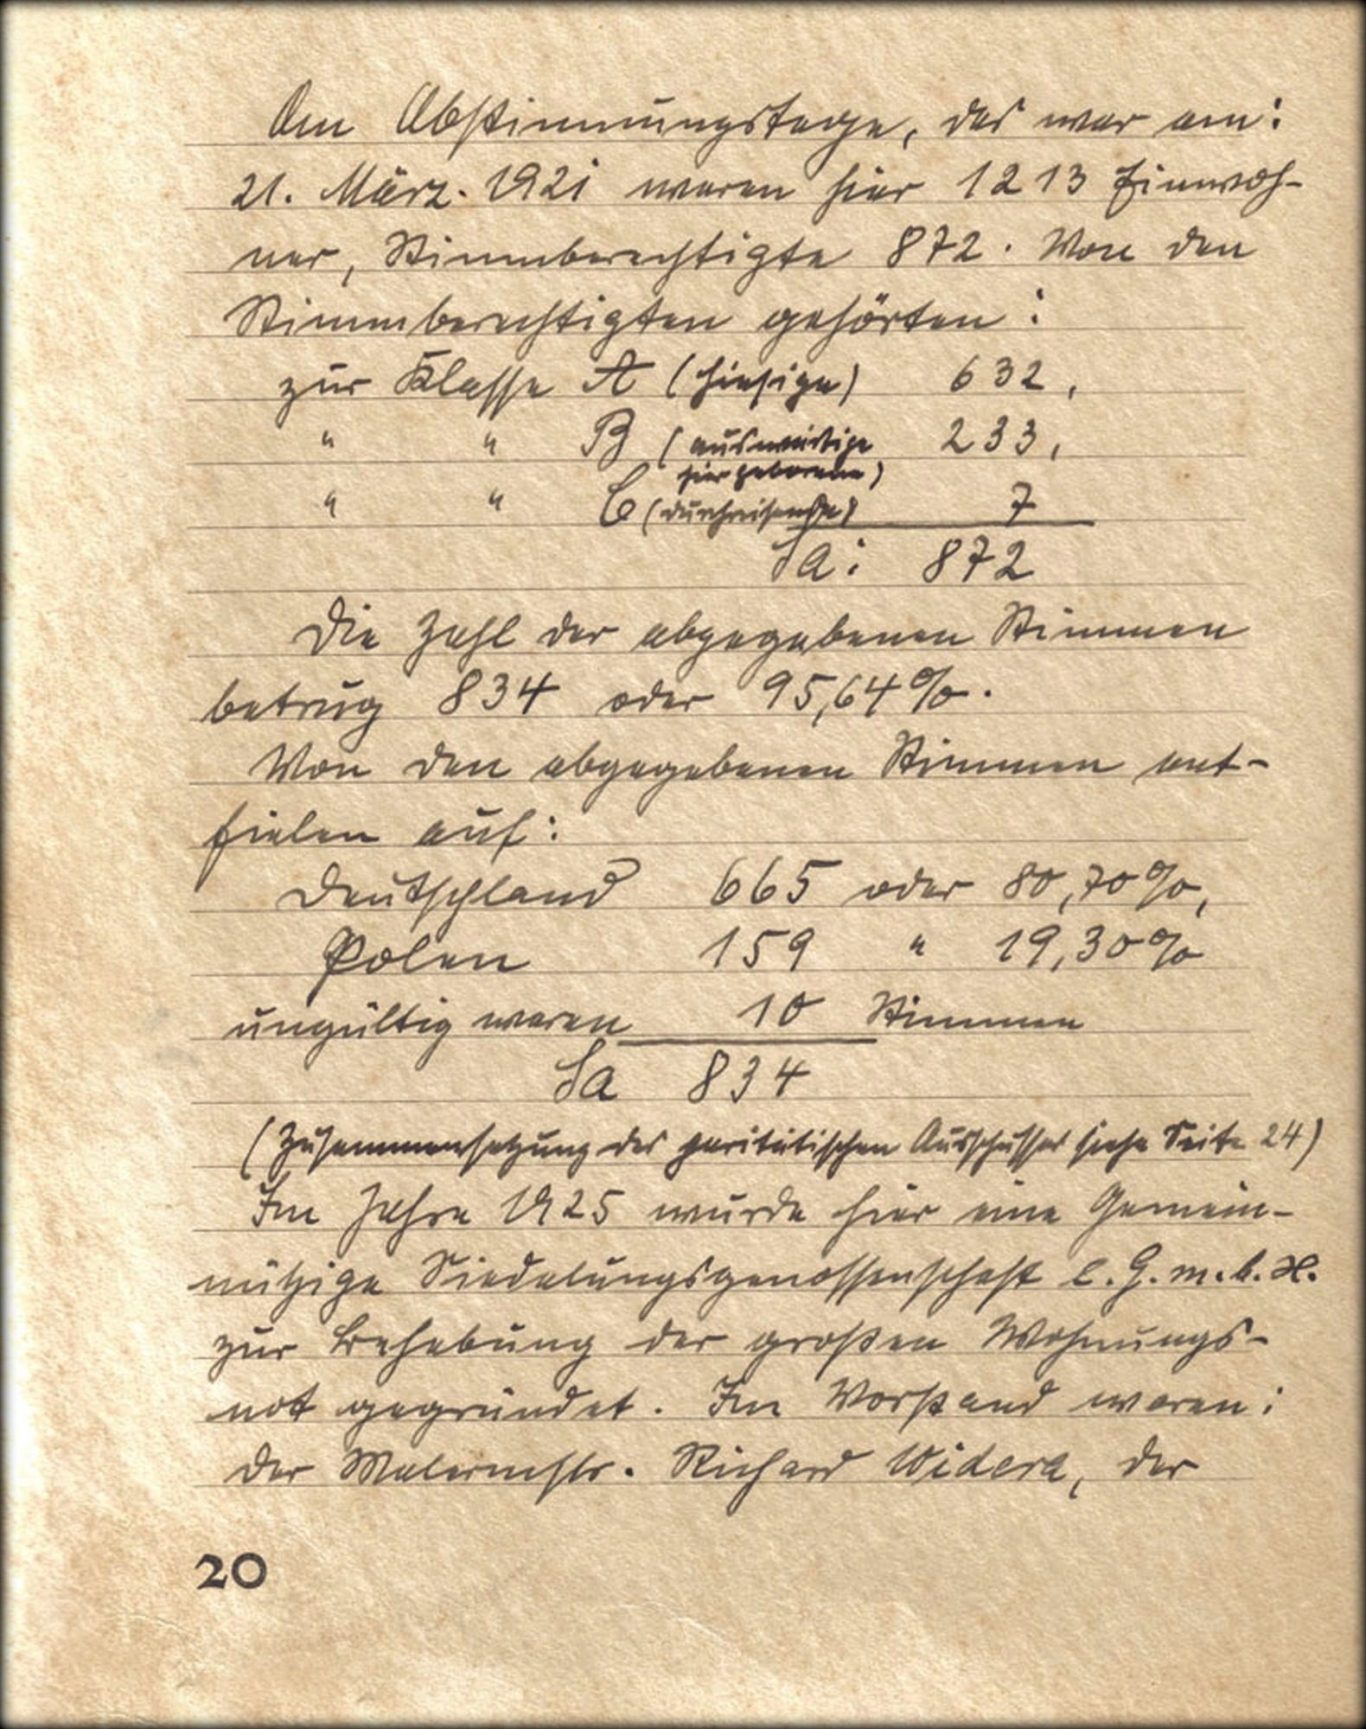 Am Abstimmungstage, das war am:
21. März. 1921 waren hier 1213 Einwoh-
ner, Stimmberechtigte 872. Von den
Stimmberechtigten gehörten:
zur Klasse A (hiesige) 632,
" " B (auswärtige 233,
hier geborene)
" " C (durchreisende) 7
Sa: 872
Die Zahl der abgegebenen Stimmen
betrug 834 oder 95,64%.
Von den abgegebenen Stimmen ent-
fielen auf:
Deutschland 665 oder 80,70%,
Polen 159 " 19,30%
ungültig waren 10 Stimmen
Sa 834
(Zusammensetzung des paritätischen Ausschusses siehe Seite 24)
Im Jahre 1925 wurde hier eine Gemein-
nützige Siedelungsgenossenschaft e.G.m.b.H.
zur Behebung der großen Wohnungs-
not gegründet. Im Vorstand waren:
der Malermstr. Richard Widera, der
20